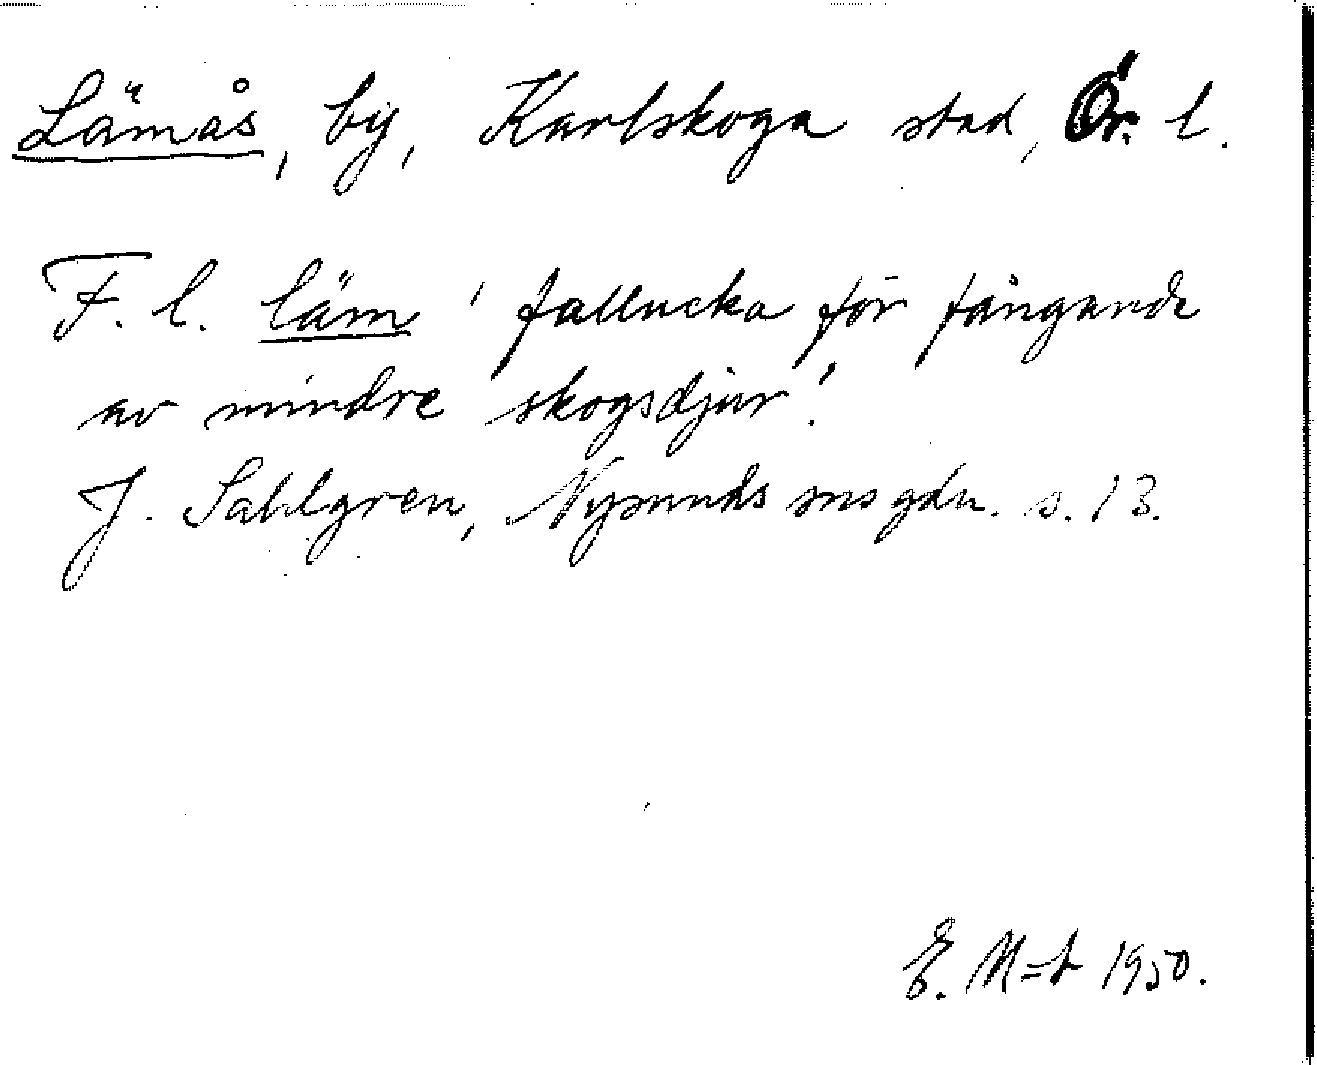 Lämås, by, Karlskoga stad, Ör. l.
F. l. läm 'fallucka för fångande
av mindre skogsdjur'.
J. Sahlgren, Nysunds sns gdn. s. 13.
E. M=t 1950.